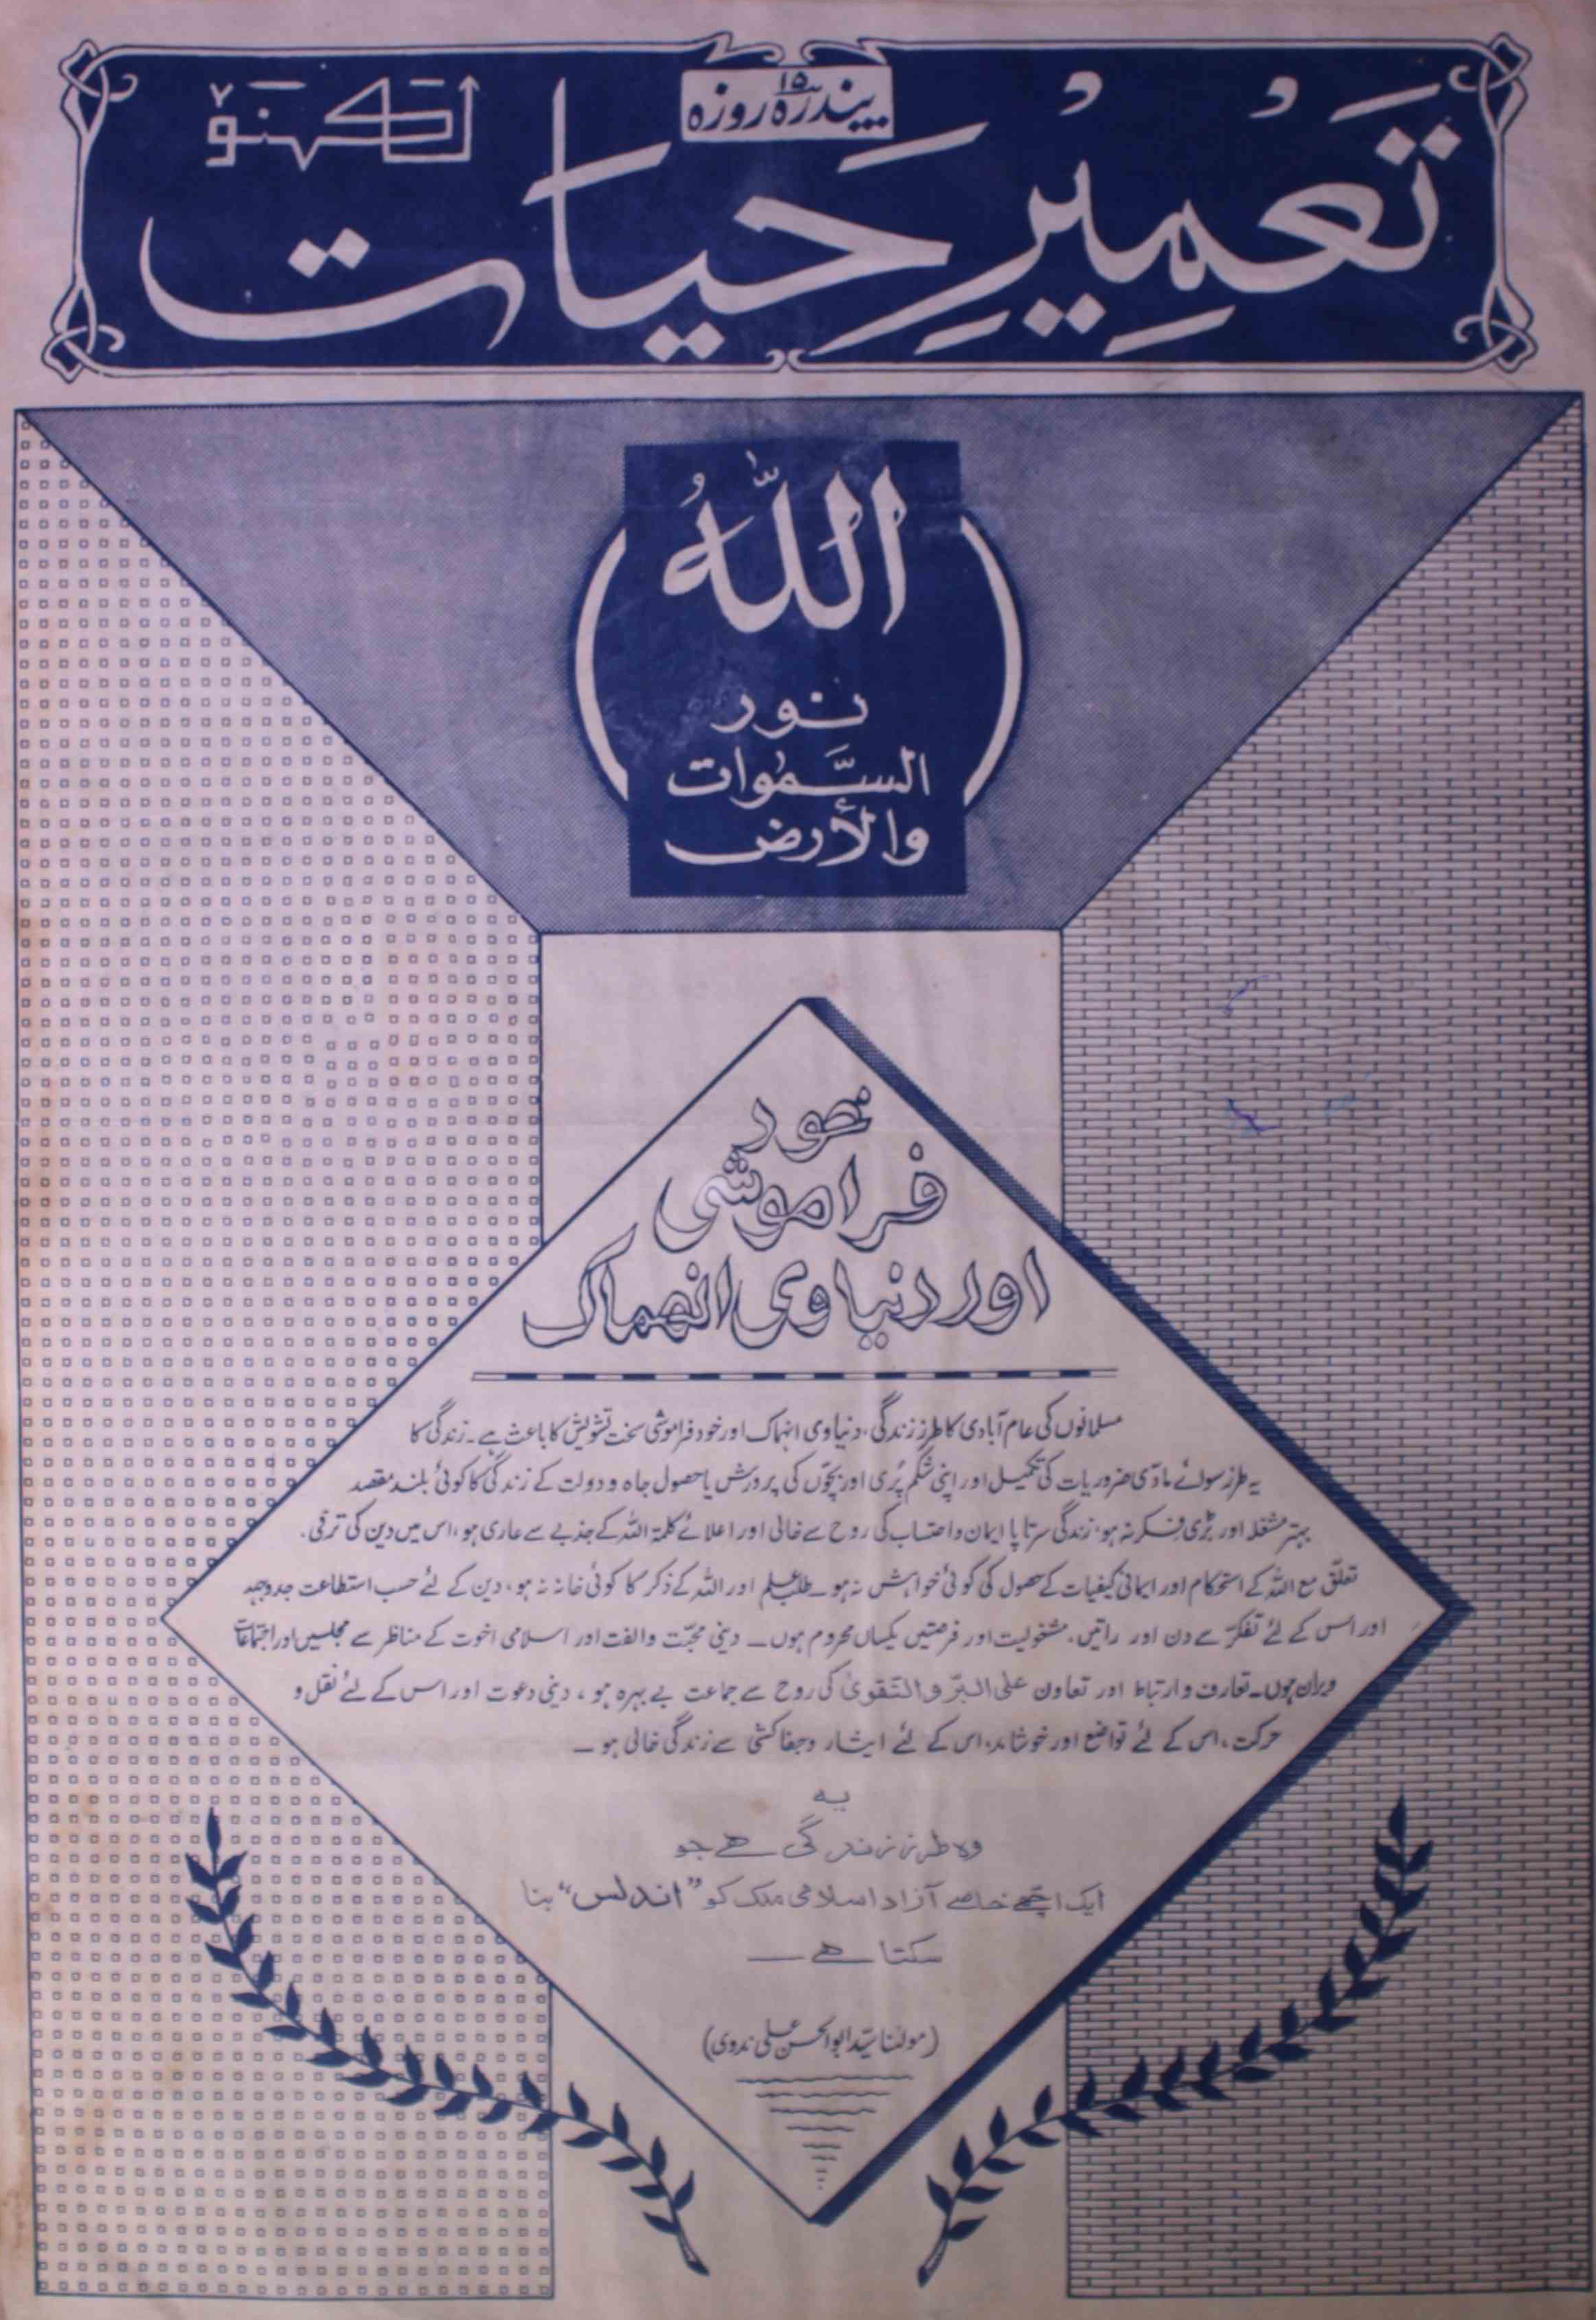 پندرہ ۱۵ روزہ
تَعْمِیْرِ حَیات
لکھنؤ
اللّٰہُ
نور
السَّمٰوات
والأرض
خود
فراموشی
اور دنیاوی انہماک
مسلمانوں کی عام آبادی کا طرز زندگی، دنیاوی انہماک اور خود فراموشی سخت تشویش کا باعث ہے۔ زندگی کا
یہ طرز سوائے مادّی ضروریات کی تکمیل اور اپنی شکم پُری اور بچّوں کی پرورش یا حصول جاہ و دولت کے زندگی کا کوئی بلند مقصد
بہتر مشغلہ اور بڑی فکر نہ ہو، زندگی سرتاپا ایمان واحتساب کی روح سے خالی اور اعلائے کلمۃ اللہ کے جذبے سے عاری ہو، اس میں دین کی ترقی،
تعلّق مع اللہ کے استحکام اور ایمانی کیفیات کے حصول کی کوئی خواہش نہ ہو۔ طلب علم اور اللہ کے ذکر کا کوئی خانہ نہ ہو، دین کے لئے حسب استطاعت جدوجہد
اور اس کے لئے تفکّر سے دن اور راتیں، مشغولیت اور فرصتیں یکساں محروم ہوں۔ دینی محبّت والفت اور اسلامی اخوت کے مناظر سے مجلسیں اور اجتماعات
ویران ہوں۔ تعارف و ارتباط اور تعاون علی البرّ والتقویٰ کی روح سے جماعت بے بہرہ ہو، دینی دعوت اور اس کے لئے نقل و
حرکت، اس کے لئے تواضع اور خوشامد، اس کے لئے ایثار وجفاکشی سے زندگی خالی ہو۔
یہ
وہ طرز زندگی ہے جو
ایک اچھے خاصے آزاد اسلامی ملک کو "اندلس" بنا
سکتا ہے۔
(مولٰنا سیّد ابوالحسن علی ندوی)